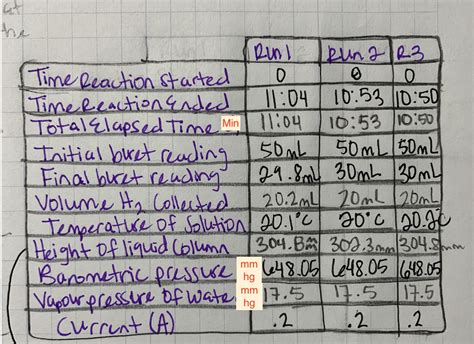 the
Run 1 Run 2 R3
Time Reaction Started 0 0 0
Time Reaction Ended 11:04 10:53 10:50
Total Elapsed Time Min 11:04 10:53 10:50
Initial buret reading 50mL 50mL 50mL
Final buret reading 29.8mL 30mL 30mL
Volume H2 Collected 20.2mL 20mL 20mL
Temperature of Solution 20.1°C 20°C 20.2C
Height of liquid Column 304.8mm 302.3mm 304.8mm
Barometric pressure mm hg 648.05 648.05 648.05
Vapour pressure of Water mm hg 17.5 17.5 17.5
Current (A) .2 .2 .2